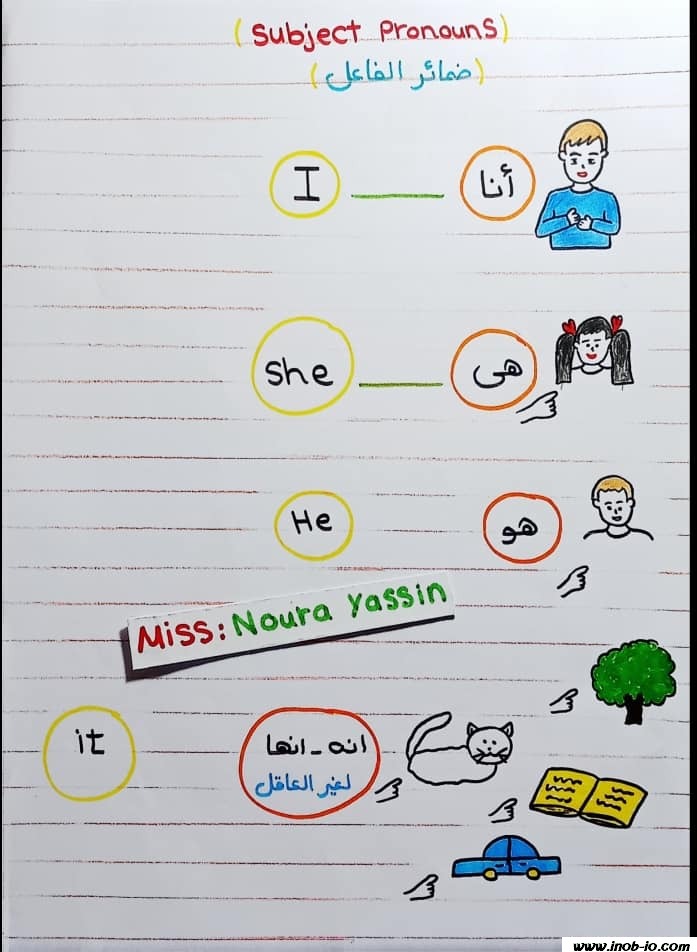 (Subject Pronouns)
(ضمائر الفاعل)
I ــــــ أنا
she ــــــ هى
He هو
Miss: Noura Yassin
it انه - انها
لغير العاقل
www.inob-io.com